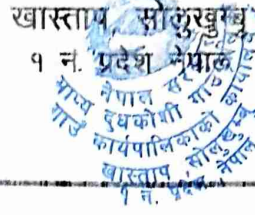 खास्ताप, सोलुखुम्बु
१ नं. प्रदेश नेपाल
माप्य दुधकोशी गाउँ
नेपाल सर
गाउँ कार्यपालिकाको कार्यालय
खास्ताप, सोलुखुम्बु
१ नं. प्रदेश, नेपाल